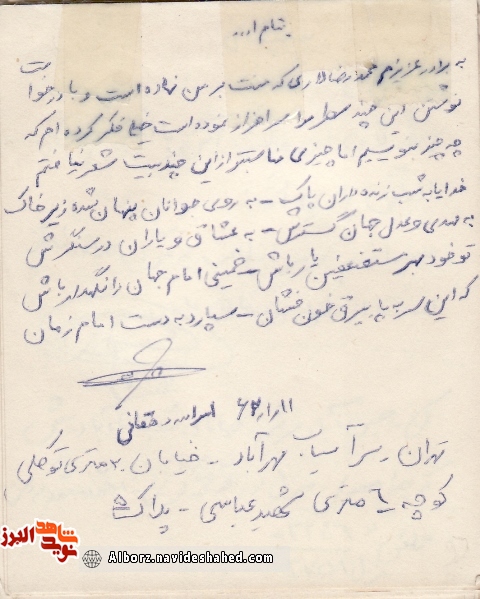 بنام او...
به برادر عزیزم محمدرضا لاری که منت بر من نهاده است و با درخواست
نوشتن این چند سطر مرا سرافراز نموده است خیلی فکر کرده ام که
چه چیز بنویسم اما چیزی مناسبتر از این چند بیت شعر نیافتم
خدایا به شب زنده داران پاک - به روی جوانان پنهان شده زیر خاک
به مهدی و عدل جهان گسترش - به عشاق و یاران در سنگرش
تو خود بهر مستضعفین یار باش - خمینی امام جهان را نگهدار باش
که این سر به پا بیرق خون فشان - سپارد به دست امام زمان
تهران - سرآسیاب مهرآباد - خیابان ۲۰ متری توکلی
کوچه ۶ متری شهید عباسی - پلاک
نوید شاهد البرز
Alborz.navideshahed.com